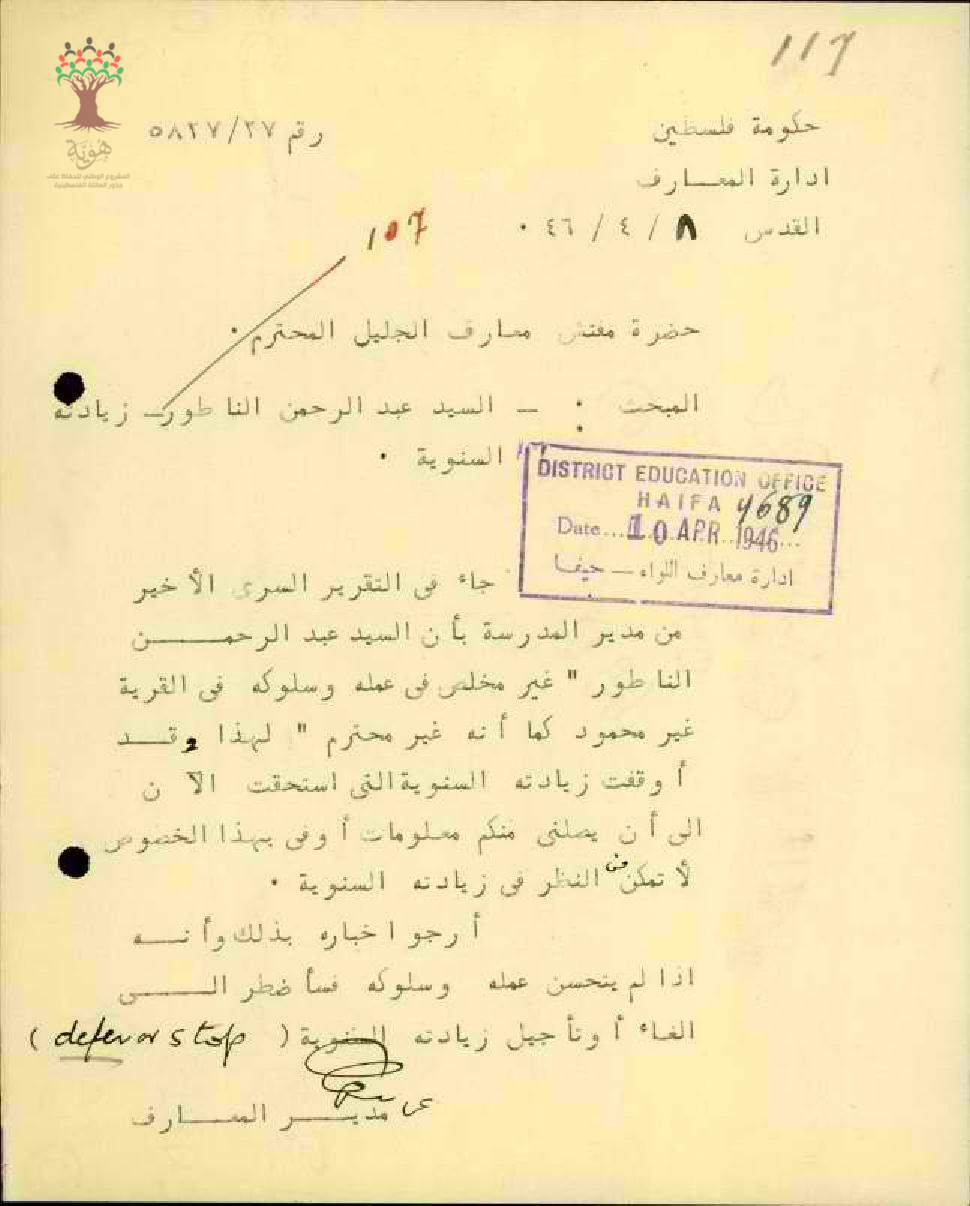 117
هوية
المشروع الوطني للحفاظ على
جذور العائلة الفلسطينية
حكومة فلسطين
رقم ٥٨٢٧/٢٧
ادارة المعـــارف
القدس ٨ / ٤ / ٤٦ ٠
107
حضرة مفتش معارف الجليل المحترم ٠
المبحث : — السيد عبد الرحمن الناطور— زيادته
السنوية ٠
DISTRICT EDUCATION OFFICE
HAIFA 4689
Date... 10 APR 1946...
ادارة معارف اللواء — حيفا
جاء فى التقرير السرى الأخير
من مدير المدرسة بأن السيد عبد الرحمــــن
الناطور " غير مخلص فى عمله وسلوكه فى القرية
غير محمود كما أنه غير محترم " لهذا وقـــد
أوقفت زيادته السنوية التى استحقت الآن
الى أن يصلنى منكم معلومات أوفى بهذا الخصوص
لا تمكن من النظر فى زيادته السنوية ٠
أرجو اخباره بذلك وأنـــه
اذا لم يتحسن عمله وسلوكه فسأضطر الـــــى
الغاء أو تأجيل زيادته السنوية ( defer or stop )
عن مديــــر المعـــارف